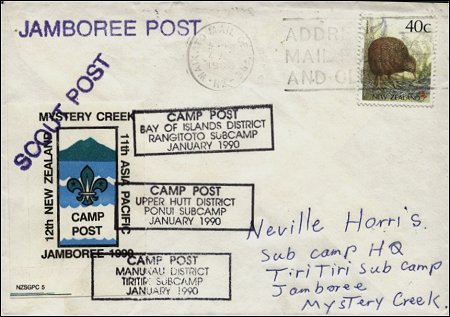 JAMBOREE POST
SCOUT POST
40c
NEW ZEALAND
ADDRE
MAIL
AND
MYSTERY CREEK
12th NEW ZEALAND
11th ASIA PACIFIC
CAMP
POST
JAMBOREE 1990
NZSGPC 5
CAMP POST
BAY OF ISLANDS DISTRICT
RANGITOTO SUBCAMP
JANUARY 1990
CAMP POST
UPPER HUTT DISTRICT
PONUI SUBCAMP
JANUARY 1990
CAMP POST
MANUKAU DISTRICT
TIRITIRI SUBCAMP
JANUARY 1990
Neville Harris.
Sub camp HQ
TiriTiri Sub camp
Jamboree
Mystery Creek.